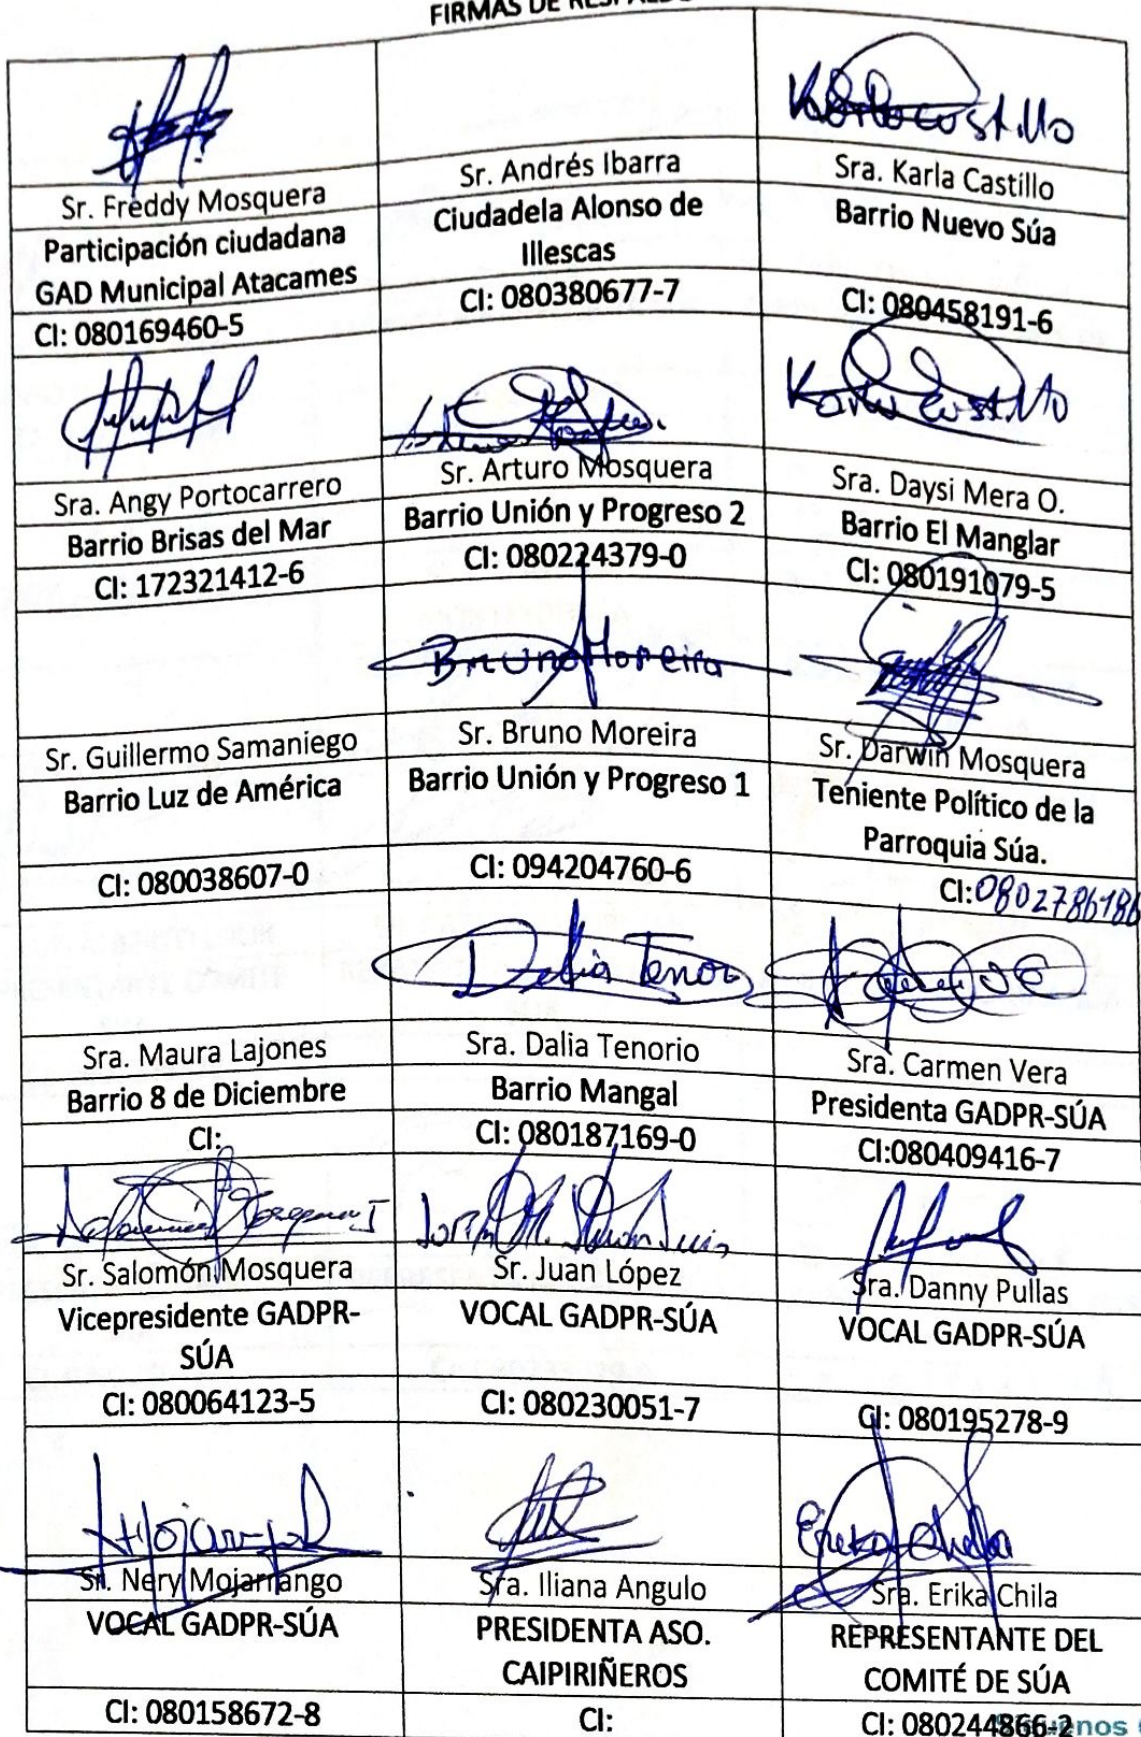 FIRMAS DE
Karla Castillo
Sr. Freddy Mosquera
Participación ciudadana
GAD Municipal Atacames
CI: 080169460-5
Sr. Andrés Ibarra
Ciudadela Alonso de
Illescas
CI: 080380677-7
Sra. Karla Castillo
Barrio Nuevo Súa
CI: 080458191-6
Karla Castillo
Sra. Angy Portocarrero
Barrio Brisas del Mar
CI: 172321412-6
Sr. Arturo Mosquera
Barrio Unión y Progreso 2
CI: 080224379-0
Sra. Daysi Mera O.
Barrio El Manglar
CI: 080191079-5
Bruno Moreira
Sr. Guillermo Samaniego
Barrio Luz de América
CI: 080038607-0
Sr. Bruno Moreira
Barrio Unión y Progreso 1
CI: 094204760-6
Sr. Darwin Mosquera
Teniente Político de la
Parroquia Súa.
CI: 0802786186
Dalia Tenor
Sra. Maura Lajones
Barrio 8 de Diciembre
CI:
Sra. Dalia Tenorio
Barrio Mangal
CI: 080187169-0
Sra. Carmen Vera
Presidenta GADPR-SÚA
CI:080409416-7
Sr. Salomón Mosquera
Vicepresidente GADPR-
SÚA
CI: 080064123-5
Sr. Juan López
VOCAL GADPR-SÚA
CI: 080230051-7
Sra. Danny Pullas
VOCAL GADPR-SÚA
CI: 080195278-9
Erika Chila
Sr. Nery Mojarrango
VOCAL GADPR-SÚA
CI: 080158672-8
Sra. Iliana Angulo
PRESIDENTA ASO.
CAIPIRIÑEROS
CI:
Sra. Erika Chila
REPRESENTANTE DEL
COMITÉ DE SÚA
CI: 080244866-2